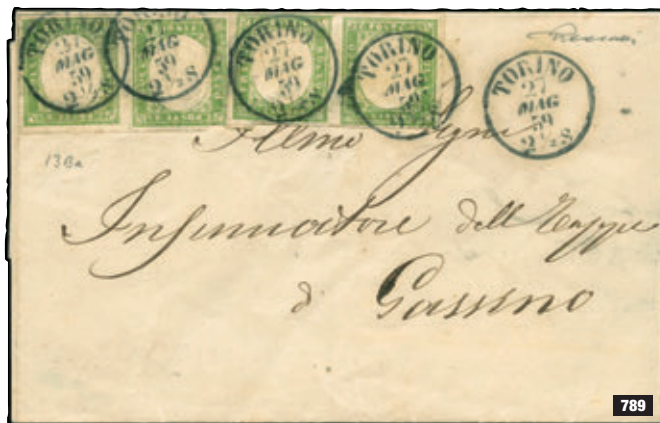 TORINO
27
MAG
59
2 ½ S
TORINO
27
MAG
59
TORINO
27
MAG
59
2 ½ S
TORINO
27
MAG
59
TORINO
27
MAG
59
2 ½ S
13Ba
Illmo Sigr
Insinuatore dell Tappa
di Gassino
789